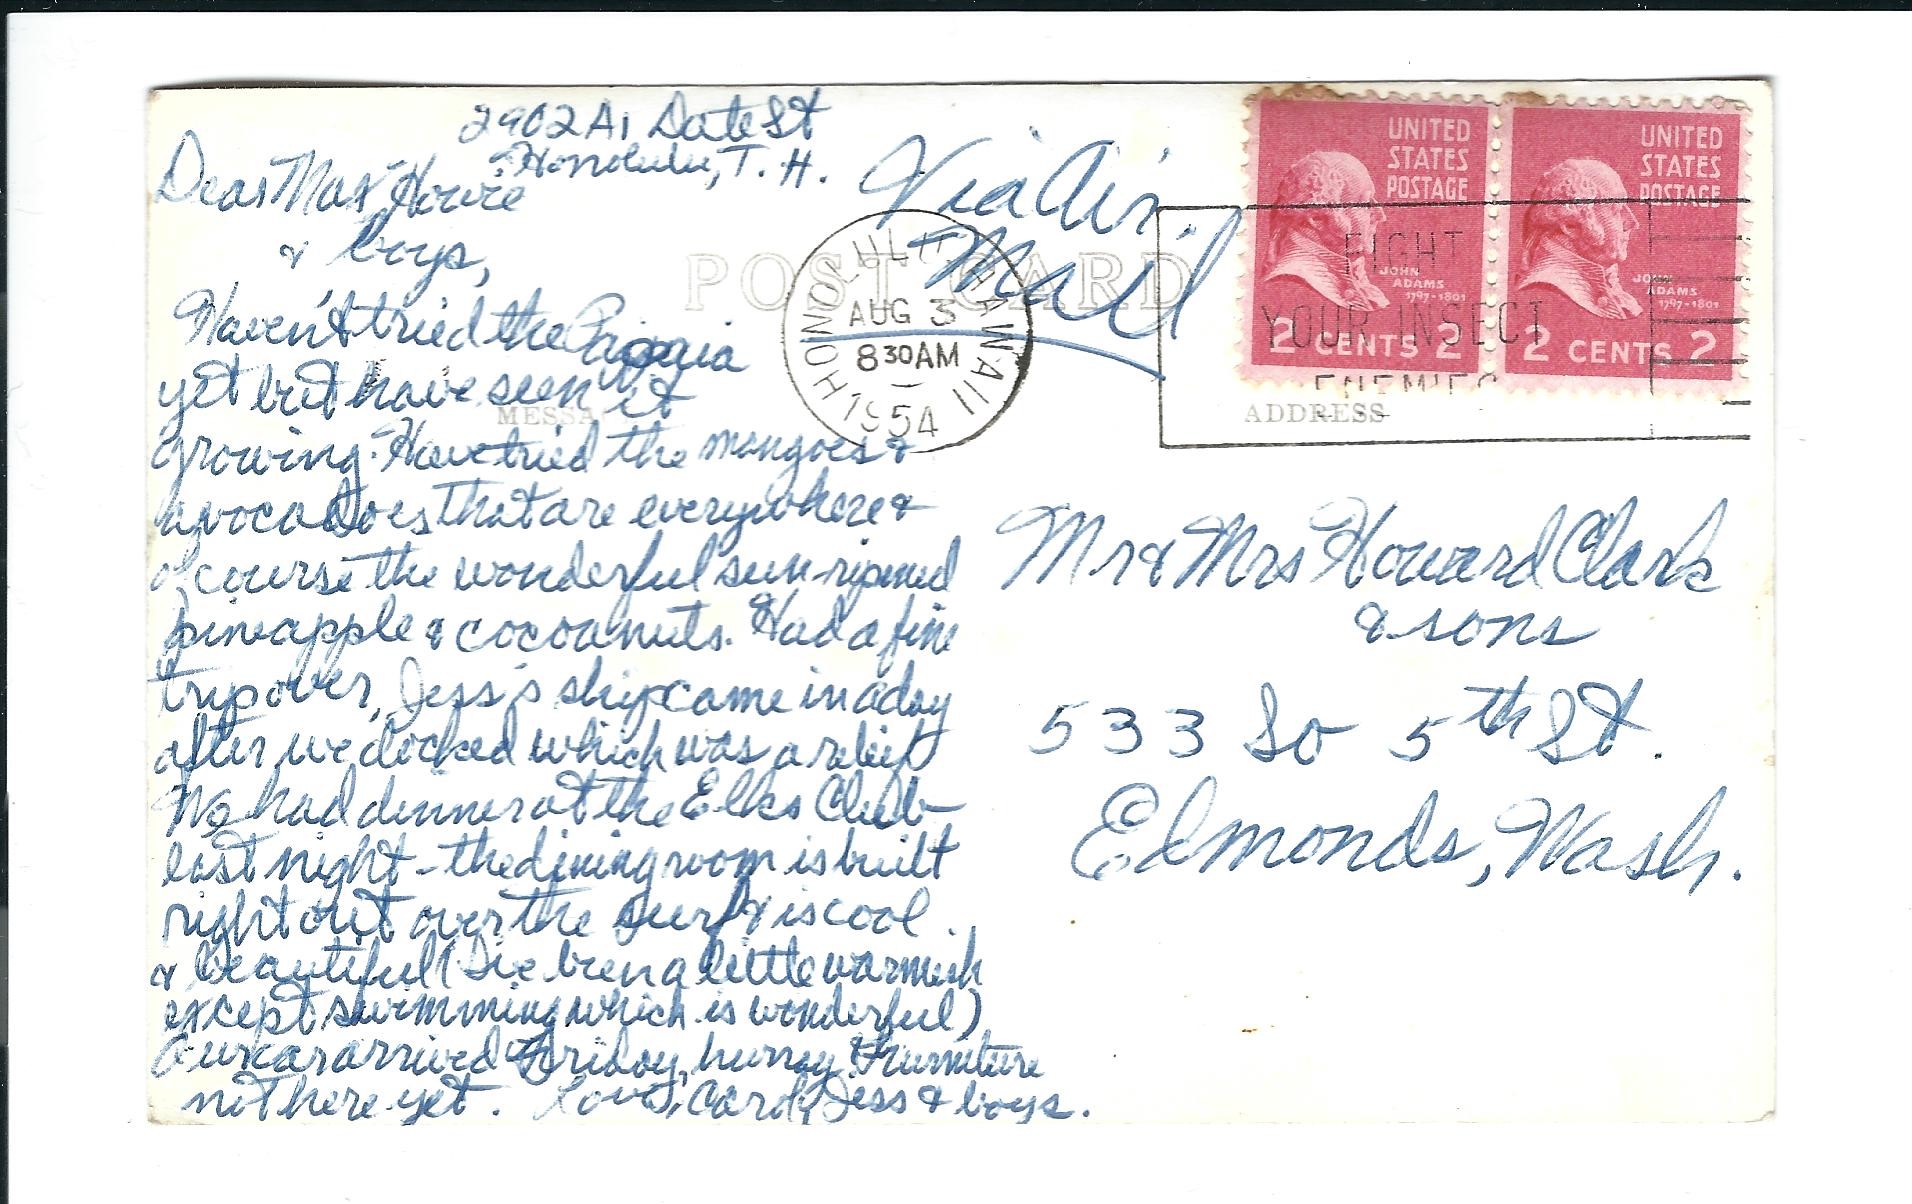 2902 A1 Date St
Honolulu, T. H.
Dear Max Howie
& boys,
Haven't tried the
yet but have seen it
growing. Have tried the mangoes &
avocadoes that are everywhere &
of course the wonderful sun-ripened
pineapple & cocoanuts. Had a fine
trip over, Jess's ship came in a day
after we docked which was a relief
We had dinner at the Elks Club
last night - the dining room is built
right out over the surf & is cool
& beautiful been a little warmish
except swimming which is wonderful)
Our car arrived Friday, hurray. Furniture
not here yet. Love, Carol, Jess & boys.
Via Air
Mail
POST CARD
MESSA
HONOLULU, HAWAII
AUG 3
8 30 AM
1954
FIGHT
YOUR INSECT
ENEMIES
UNITED
STATES
POSTAGE
JOHN
ADAMS
1797-1801
2 CENTS 2
UNITED
STATES
POSTAGE
JOHN
ADAMS
1797-1801
2 CENTS 2
ADDRESS
Mr & Mrs Howard Clark
& sons
533 So 5th St.
Edmonds, Wash.